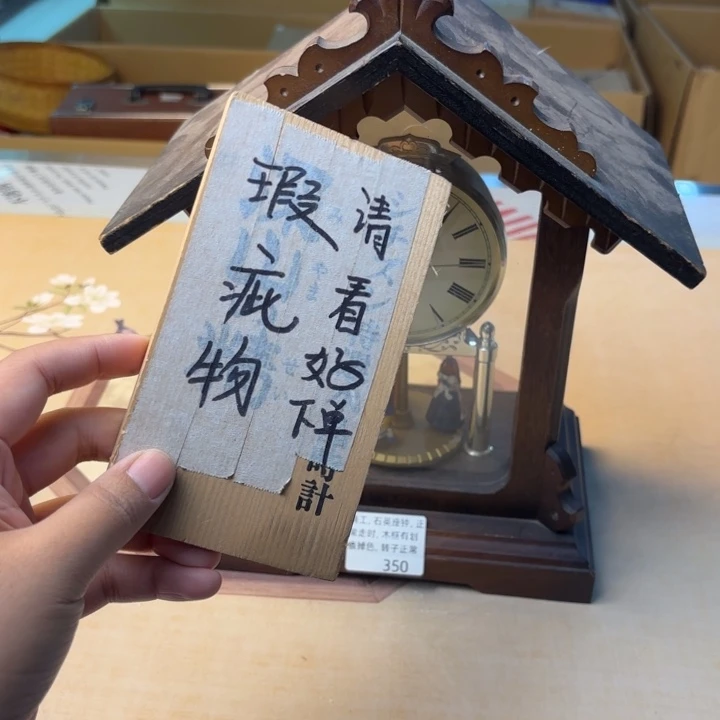 瑕疵物
清看好下单
計
工, 石英座钟, 正
常走时, 木框有划
痕掉色, 转子正常
350